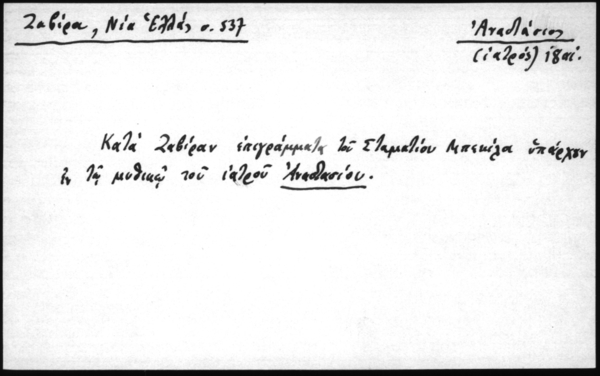 Ζαβίρα, Νέα Ἑλλάς σ. 537
Ἀναστάσιος
(ἰατρός) 18 αἰ.
Κατὰ Ζαβίραν ἐπιγράμματα τοῦ Σταματίου Μπεκέλα ὑπάρχουν
ἐν τῇ μυθικῇ τοῦ ἰατροῦ Ἀναστασίου.